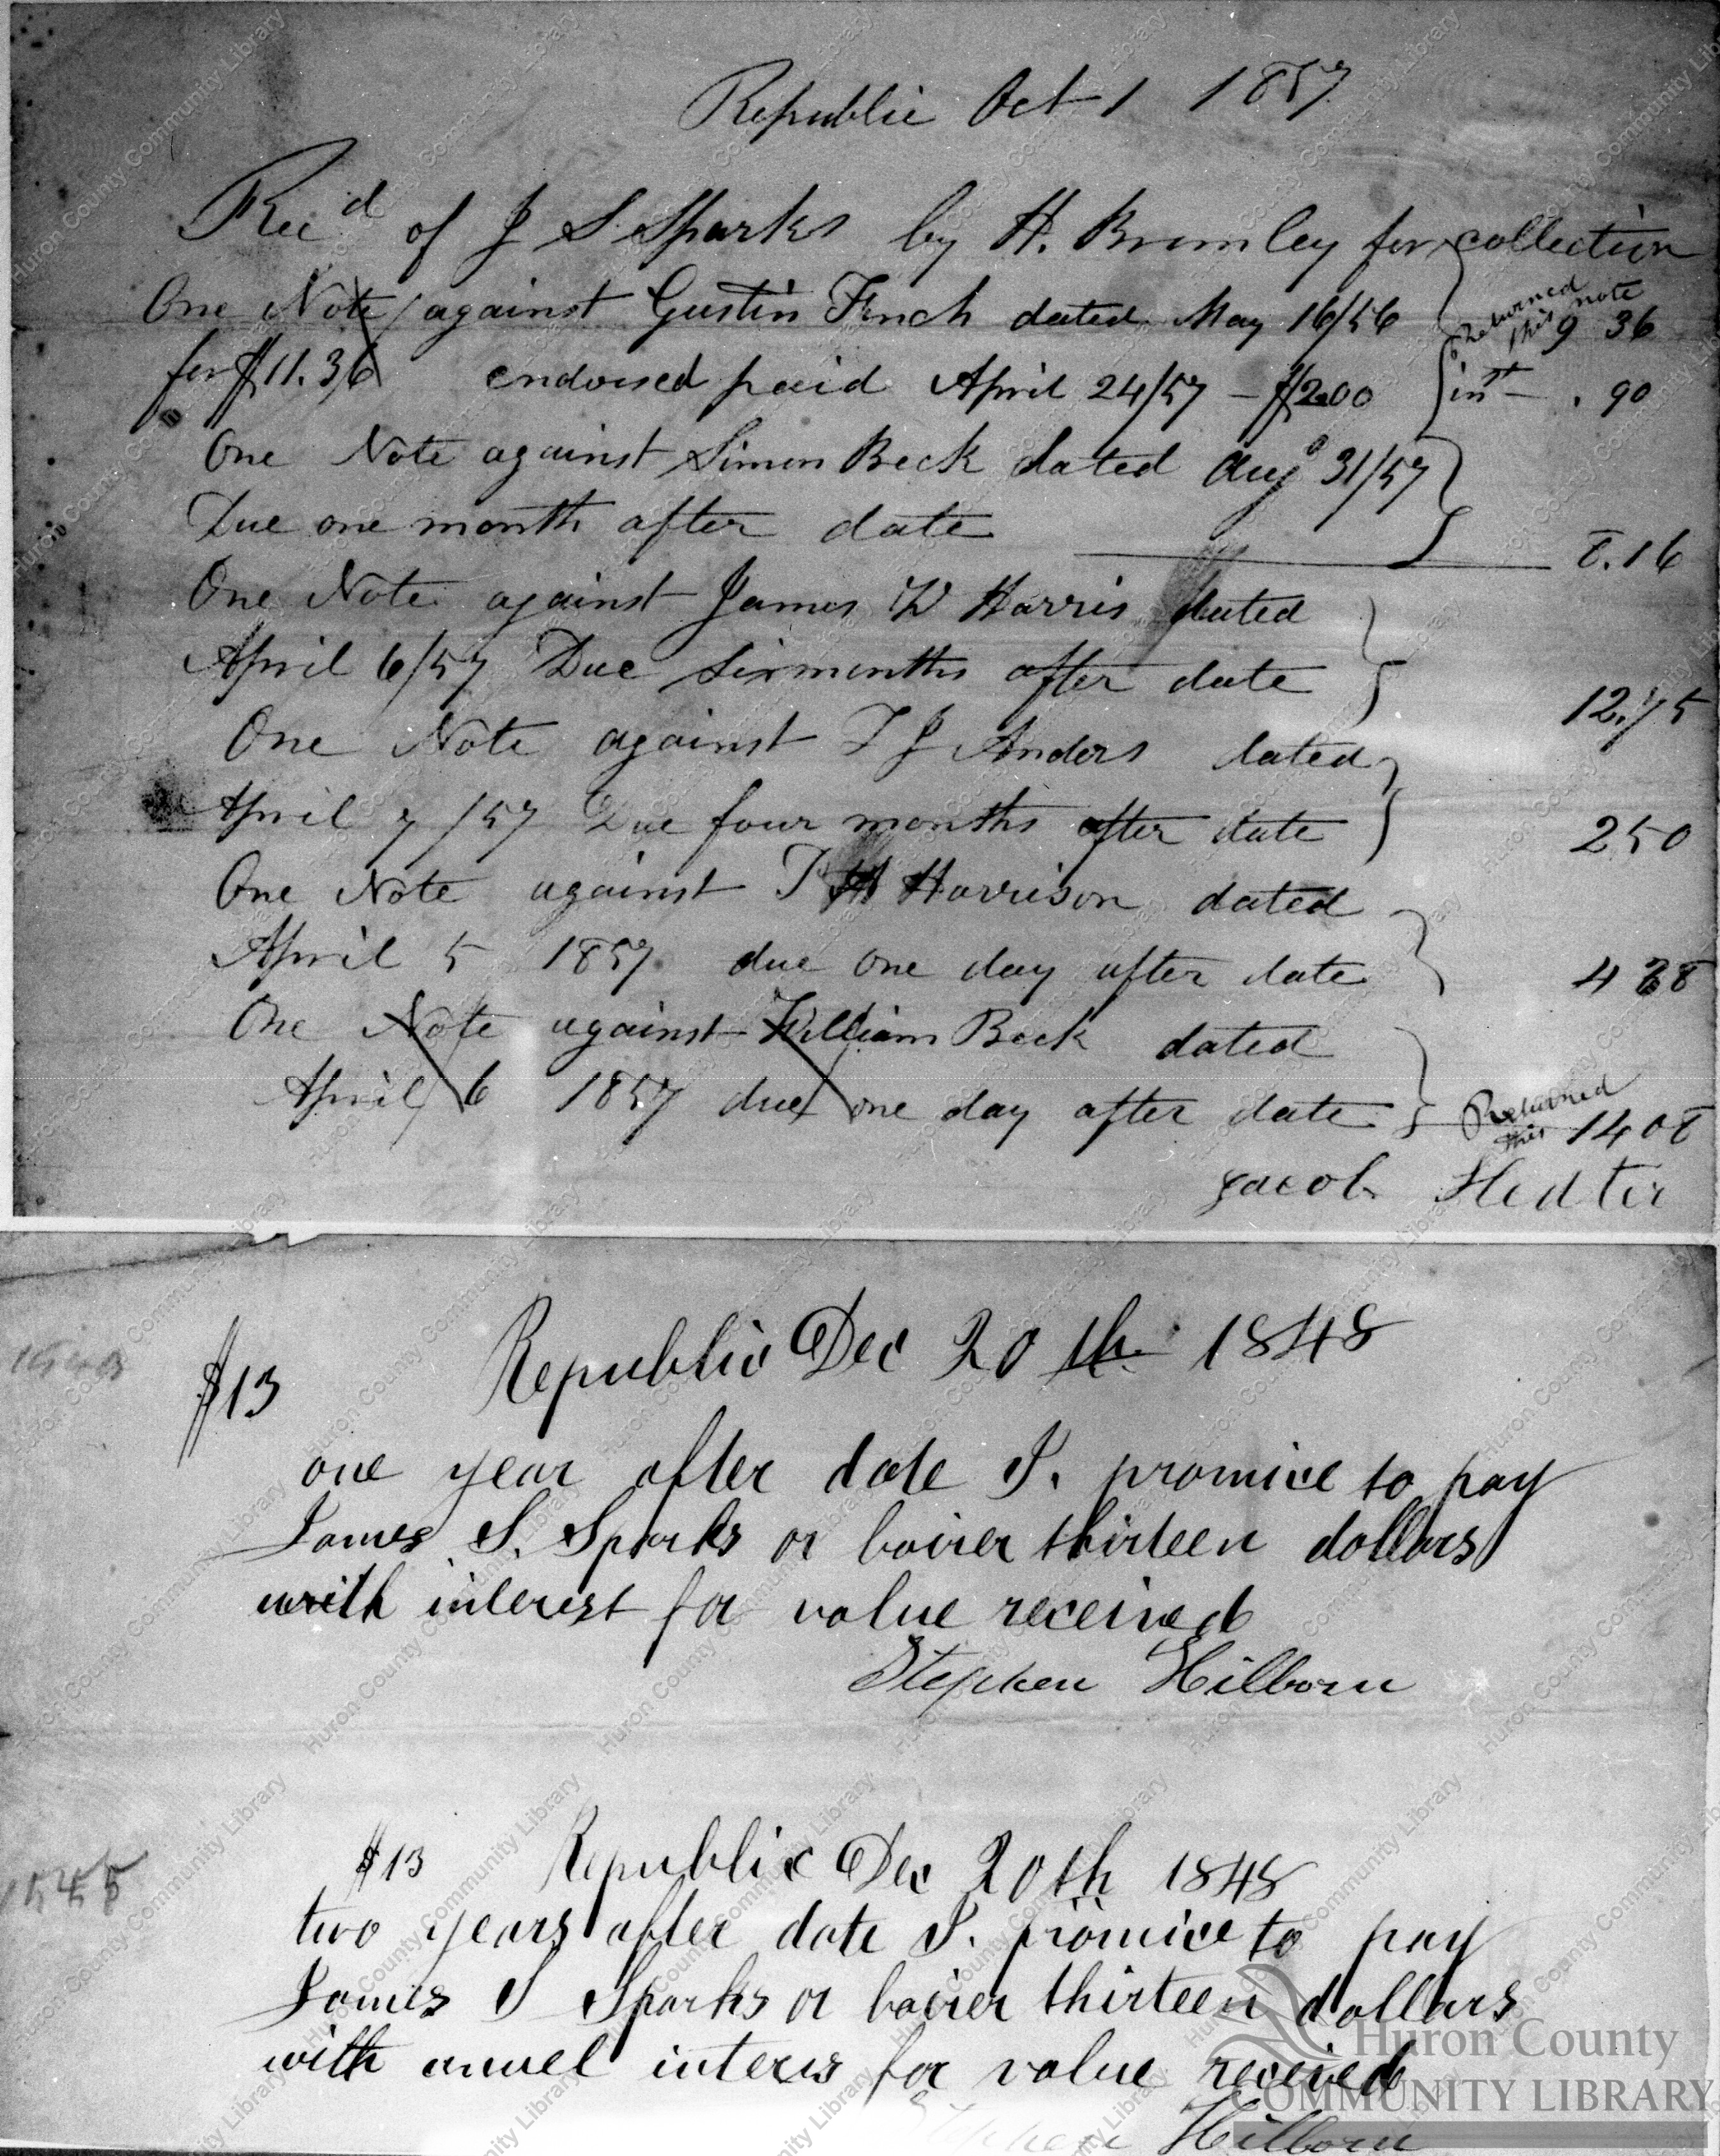 Republic Oct 1 1857
Rec'd of J S Sparks by H. Brumley for collection
One Note against Gustin Finch dated May 16/56 Returned this note 9 36
for $11.36 endorsed paid April 24/57 - $2.00 inst .90
One Note against Simon Beck dated Aug 31/57
Due one month after date 8.16
One Note against James W Harris dated
April 6/57 Due Six months after date 12.75
One Note against T J Anders dated
April 7/57 Due four months after date 2 50
One Note against T H Harrison dated
April 5 1857 due one day after date 4
One Note against William Beck dated
April 6 1857 due one day after date Returned this 14 08
Jacob
$13 Republic Dec 20th 1848
one year after date I. promice to pay
James S. Sparks or bairer thirteen dollars
with interest for value received
Stephen Hilborn
1545
$13 Republic Dec 20th 1848
two years after date I. promice to pay
James S Sparks or bairer thirteen dollars
with anuel interes for value received
Stephen Hilborn
Huron County
COMMUNITY LIBRARY